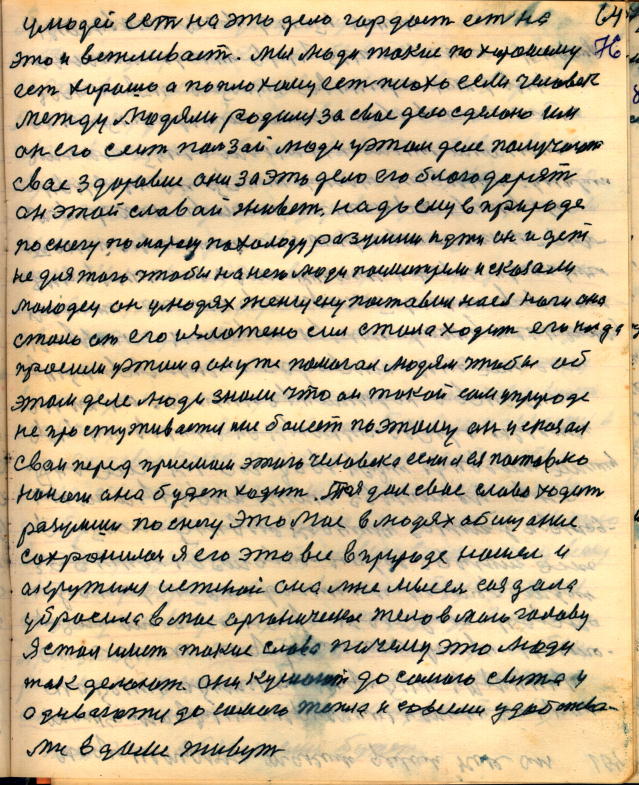 умодей ест на это дело гордост ест на 64
это и вежливаст. мы люди такие по хорошому 76
ест хорошо а поплохому ест плохо если человек
между людями родился за свае дело сделано им
он его сеит ползай люди уэтом деле получают
свае здоровие они за это дело его благодарят
он этой славай живет, надо ему в природе
поснегу поморозу похолоду разумши идти он идет
не для того чтобы на него люди посмотрели и сказали
молодец он улюдях женщену поставил на ея ноги она
стала от его изложено сил стала ходит его когда
просили уэтим а он уже помогал людям чтобы об
этом деле люди знали что он такой сам уприроде
не простуживается ине болеет поэтому он и сказал
свои перед приемом этого человека если я ея поставлю
на ноги она будет ходит. Тоя дал свае слово ходит
разумши по снегу это мое в людях обищание
сохранилося я его это все в природе нашел и
окружился истеной она мне мысел создала
убросила в мае органическое тело в маю голову
Я стал имет такие слова почему это люди
так делают. они кушают до самого сыта и
одеваются до самого тепла и совсеми удобства-
ми в доме живут